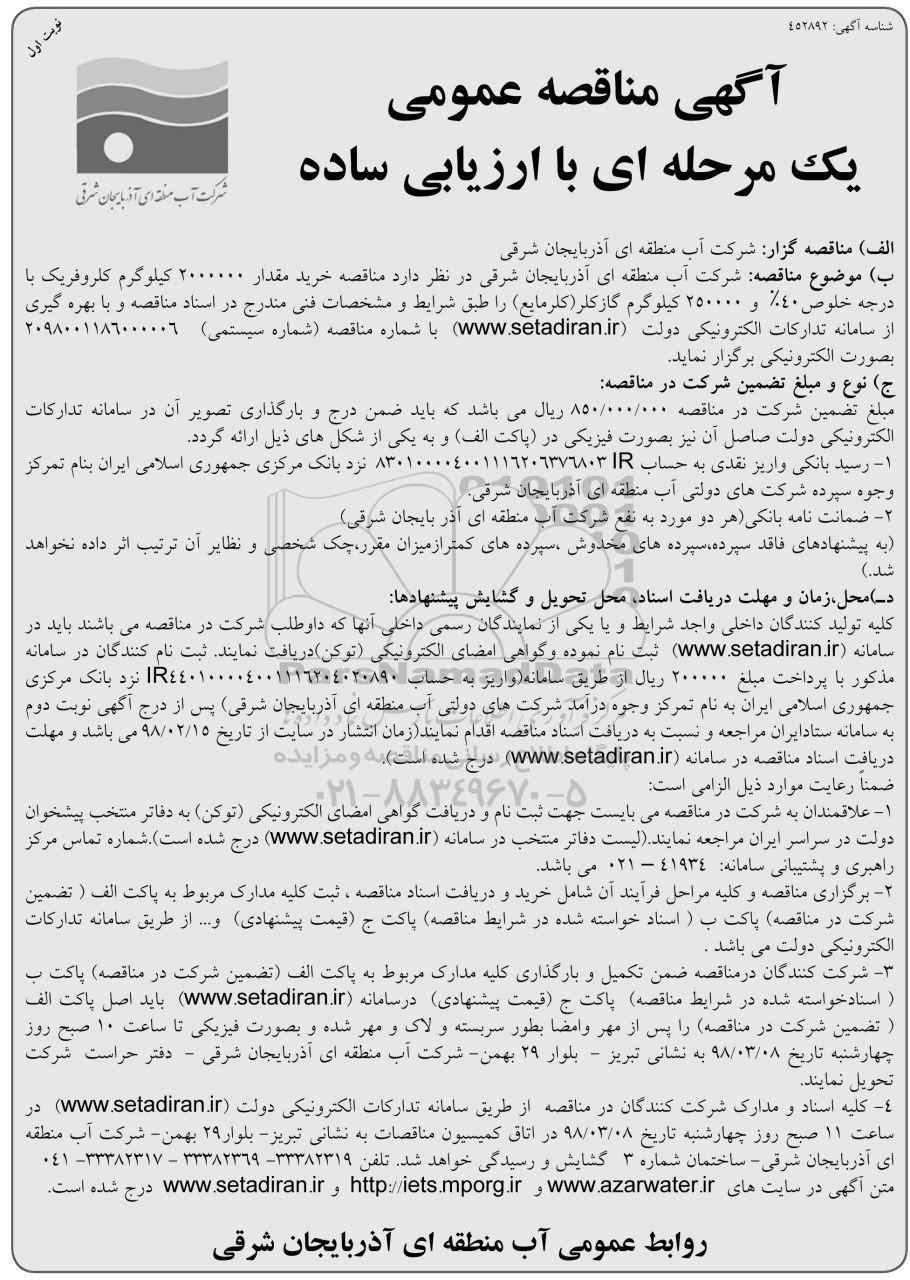 شناسه آگهی: ۴۵۲۸۹۲
نوبت اول
آگهی مناقصه عمومی
یک مرحله ای با ارزیابی ساده
شرکت آب منطقه ای آذربایجان شرقی
الف) مناقصه گزار: شرکت آب منطقه ای آذربایجان شرقی
ب) موضوع مناقصه: شرکت آب منطقه ای آذربایجان شرقی در نظر دارد مناقصه خرید مقدار ۲۰۰۰۰۰۰ کیلوگرم کلروفریک با
درجه خلوص۴۰٪ و ۲۵۰۰۰۰ کیلوگرم گازکلر(کلرمایع) را طبق شرایط و مشخصات فنی مندرج در اسناد مناقصه و با بهره گیری
از سامانه تدارکات الکترونیکی دولت (www.setadiran.ir) با شماره مناقصه (شماره سیستمی) ۲۰۹۸۰۰۱۱۸۶۰۰۰۰۰۶
بصورت الکترونیکی برگزار نماید.
ج) نوع و مبلغ تضمین شرکت در مناقصه:
مبلغ تضمین شرکت در مناقصه ۸۵۰/۰۰۰/۰۰۰ ریال می باشد که باید ضمن درج و بارگذاری تصویر آن در سامانه تدارکات
الکترونیکی دولت صاصل آن نیز بصورت فیزیکی در (پاکت الف) و به یکی از شکل های ذیل ارائه گردد.
۱- رسید بانکی واریز نقدی به حساب IR ۸۳۰۱۰۰۰۰۴۰۰۱۱۱۶۲۰۶۳۷۶۸۰۳ نزد بانک مرکزی جمهوری اسلامی ایران بنام تمرکز
وجوه سپرده شرکت های دولتی آب منطقه ای آذربایجان شرقی.
۲- ضمانت نامه بانکی(هر دو مورد به نفع شرکت آب منطقه ای آذر بایجان شرقی)
(به پیشنهادهای فاقد سپرده،سپرده های مخدوش ،سپرده های کمترازمیزان مقرر،چک شخصی و نظایر آن ترتیب اثر داده نخواهد
شد.)
د-)محل،زمان و مهلت دریافت اسناد، محل تحویل و گشایش پیشنهادها:
کلیه تولید کنندگان داخلی واجد شرایط و یا یکی از نمایندگان رسمی داخلی آنها که داوطلب شرکت در مناقصه می باشند باید در
سامانه (www.setadiran.ir) ثبت نام نموده وگواهی امضای الکترونیکی (توکن)دریافت نمایند. ثبت نام کنندگان در سامانه
مذکور با پرداخت مبلغ ۲۰۰۰۰۰ ریال از طریق سامانه(واریز به حساب IR۴۴۰۱۰۰۰۰۴۰۰۱۱۱۶۲۰۴۰۲۰۸۹۰ نزد بانک مرکزی
جمهوری اسلامی ایران به نام تمرکز وجوه درآمد شرکت های دولتی آب منطقه ای آذربایجان شرقی) پس از درج آگهی نوبت دوم
به سامانه ستادایران مراجعه و نسبت به دریافت اسناد مناقصه اقدام نمایند(زمان انتشار در سایت از تاریخ ۹۸/۰۲/۱۵ می باشد و مهلت
دریافت اسناد مناقصه در سامانه (www.setadiran.ir) درج شده است).
ضمناً رعایت موارد ذیل الزامی است:
۱- علاقمندان به شرکت در مناقصه می بایست جهت ثبت نام و دریافت گواهی امضای الکترونیکی (توکن) به دفاتر منتخب پیشخوان
دولت در سراسر ایران مراجعه نمایند.(لیست دفاتر منتخب در سامانه (www.setadiran.ir) درج شده است).شماره تماس مرکز
راهبری و پشتیبانی سامانه: ۴۱۹۳۴ – ۰۲۱ می باشد.
۲- برگزاری مناقصه و کلیه مراحل فرآیند آن شامل خرید و دریافت اسناد مناقصه ، ثبت کلیه مدارک مربوط به پاکت الف ( تضمین
شرکت در مناقصه) پاکت ب ( اسناد خواسته شده در شرایط مناقصه) پاکت ج (قیمت پیشنهادی) و... از طریق سامانه تدارکات
الکترونیکی دولت می باشد .
۳- شرکت کنندگان درمناقصه ضمن تکمیل و بارگذاری کلیه مدارک مربوط به پاکت الف (تضمین شرکت در مناقصه) پاکت ب
( اسنادخواسته شده در شرایط مناقصه) پاکت ج (قیمت پیشنهادی) درسامانه (www.setadiran.ir) باید اصل پاکت الف
( تضمین شرکت در مناقصه) را پس از مهر وامضا بطور سربسته و لاک و مهر شده و بصورت فیزیکی تا ساعت ۱۰ صبح روز
چهارشنبه تاریخ ۹۸/۰۳/۰۸ به نشانی تبریز - بلوار ۲۹ بهمن- شرکت آب منطقه ای آذربایجان شرقی - دفتر حراست شرکت
تحویل نمایند.
۴- کلیه اسناد و مدارک شرکت کنندگان در مناقصه از طریق سامانه تدارکات الکترونیکی دولت (www.setadiran.ir) در
ساعت ۱۱ صبح روز چهارشنبه تاریخ ۹۸/۰۳/۰۸ در اتاق کمیسیون مناقصات به نشانی تبریز- بلوار۲۹ بهمن- شرکت آب منطقه
ای آذربایجان شرقی- ساختمان شماره ۳ گشایش و رسیدگی خواهد شد. تلفن ۳۳۳۸۲۳۱۹- ۳۳۳۸۲۳۶۹ - ۳۳۳۸۲۳۱۷- ۰۴۱
متن آگهی در سایت های www.azarwater.ir و http://iets.mporg.ir و www.setadiran.ir درج شده است.
روابط عمومی آب منطقه ای آذربایجان شرقی
ParsNamadData
پایگاه اطلاع رسانی مناقصه و مزایده
۰۲۱-۸۸۳۴۹۶۷۰-۵